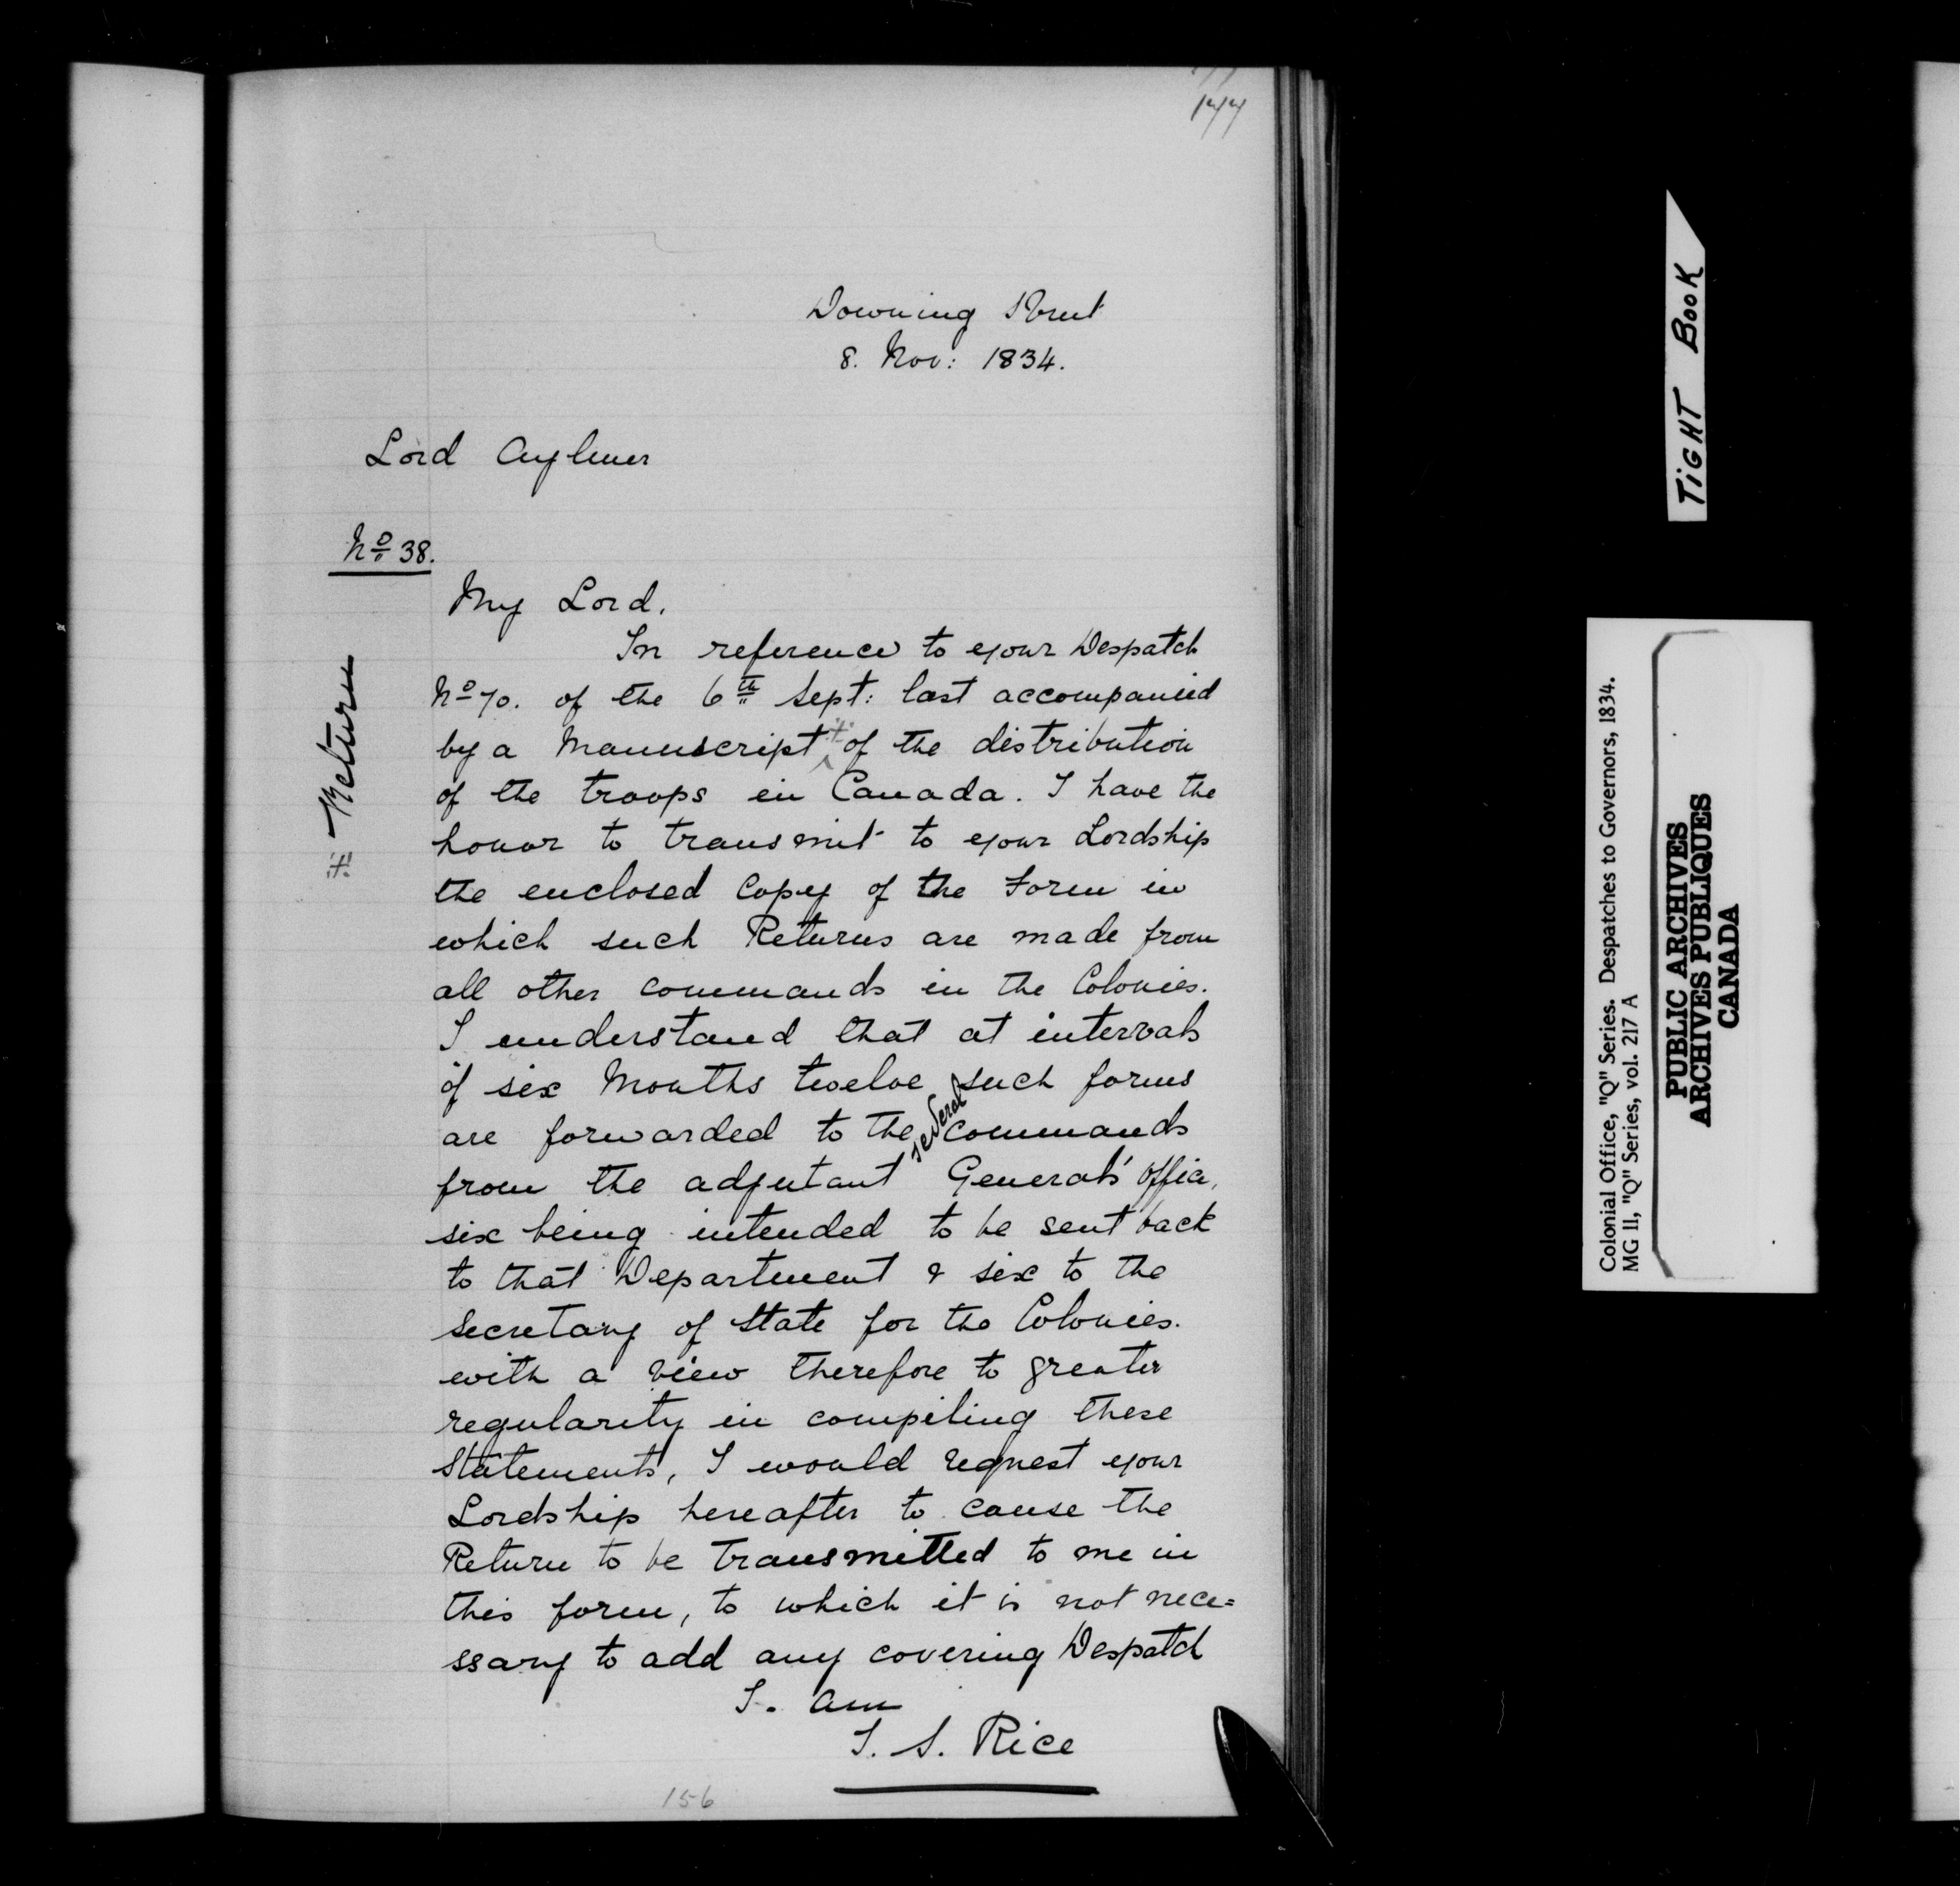 177
Downing Street
8. Nov: 1834.
Lord Aylmer
No 38.
My Lord.
In reference to your Despatch
No 70. of the 6th Sept: last accompanied
by a Manuscript ⁜ of the distribution
of the troops in Canada. I have the
honor to transmit to your Lordship
the enclosed Copy of the Form in
which such Returns are made from
all other commands in the Colonies.
I understand that at intervals
of six Months twelve such forms
are forwarded to the several commands
from the adjutant General's Office,
six being intended to be sent back
to that Department & six to the
Secretary of State for the Colonies.
with a view therefore to greater
regularity in compiling these
Statements, I would request your
Lordship hereafter to cause the
Return to be transmitted to me in
this form, to which it is not nece=
ssary to add any covering Despatch
I. am
T. S. Rice
156
⁜ Return
TIGHT BOOK
Colonial Office, "Q" Series. Despatches to Governors, 1834.
MG 11, "Q" Series, vol. 217 A
PUBLIC ARCHIVES
ARCHIVES PUBLIQUES
CANADA